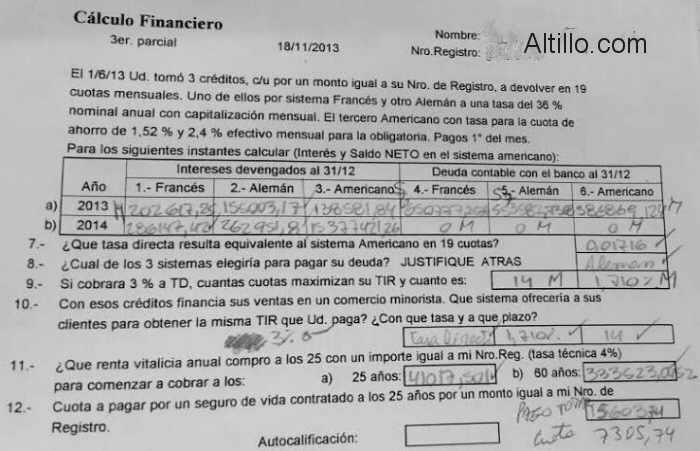 Cálculo Financiero
3er. parcial 18/11/2013 Nombre:
Nro.Registro: Altillo.com
El 1/6/13 Ud. tomó 3 créditos, c/u por un monto igual a su Nro. de Registro, a devolver en 19
cuotas mensuales. Uno de ellos por sistema Francés y otro Alemán a una tasa del 36 %
nominal anual con capitalización mensual. El tercero Americano con tasa para la cuota de
ahorro de 1,52 % y 2,4 % efectivo mensual para la obligatoria. Pagos 1° del mes.
Para los siguientes instantes calcular (Interés y Saldo NETO en el sistema americano):
Intereses devengados al 31/12 Deuda contable con el banco al 31/12
Año 1.- Francés 2.- Alemán 3.- Americano 4.- Francés 5.- Alemán 6.- Americano
a) 2013 155003,17 138581,84
b) 2014 0 M 0 M 0 M
7.- ¿Que tasa directa resulta equivalente al sistema Americano en 19 cuotas? 0,01716
8.- ¿Cual de los 3 sistemas elegiría para pagar su deuda? JUSTIFIQUE ATRAS Aleman
9.- Si cobrara 3 % a TD, cuantas cuotas maximizan su TIR y cuanto es: 14 M 1,710% M
10.- Con esos créditos financia sus ventas en un comercio minorista. Que sistema ofrecería a sus
clientes para obtener la misma TIR que Ud. paga? ¿Con que tasa y a que plazo?
3% Tasa Directa 1,710% 14
11.- ¿Que renta vitalicia anual compro a los 25 con un importe igual a mi Nro.Reg. (tasa técnica 4%)
para comenzar a cobrar a los: a) 25 años: b) 60 años:
12.- Cuota a pagar por un seguro de vida contratado a los 25 años por un monto igual a mi Nro. de
Registro. Cuota 7305,74
Autocalificación: